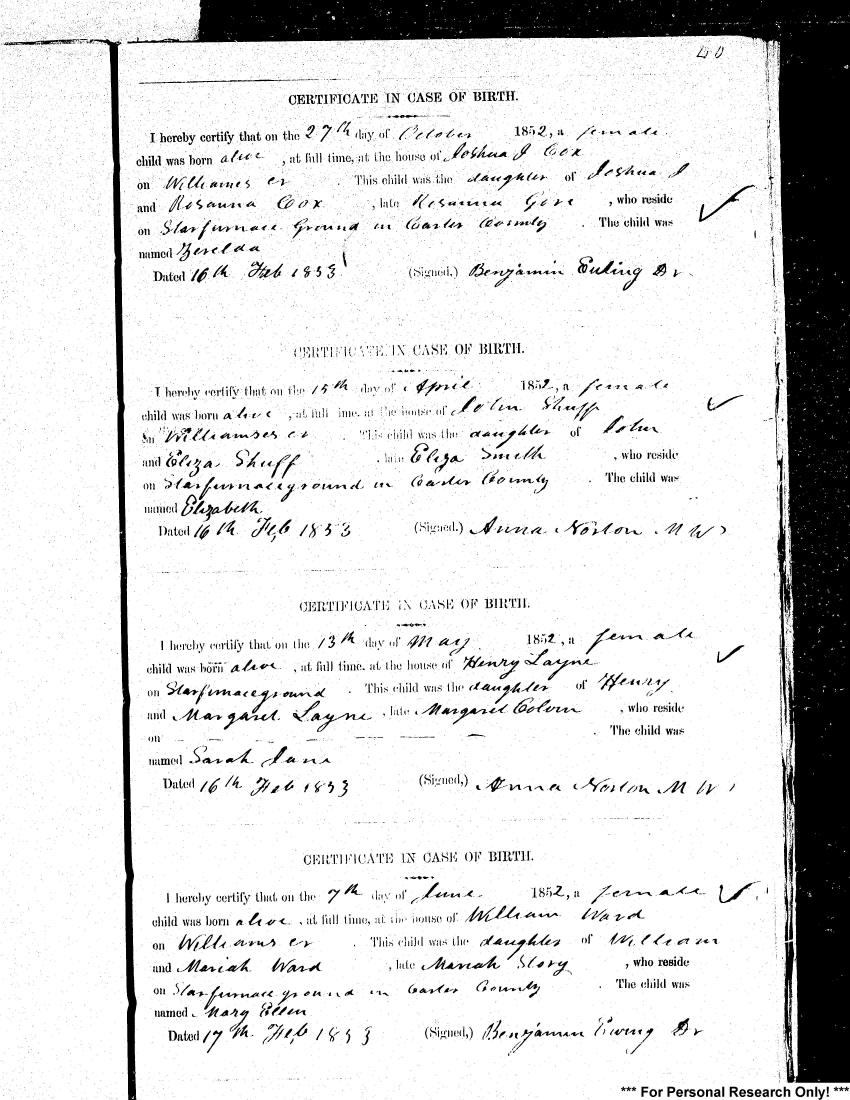 40
CERTIFICATE IN CASE OF BIRTH.
I hereby certify that on the 27th day of October 1852, a female
child was born alive , at full time, at the house of Joshua J Cox
on Williams cr . This child was the daughter of Joshua J
and Rosanna Cox , late Rosanna Gore , who reside
on Starfurnace Ground in Carter County . The child was
named Zerelda
Dated 16th Feb 1853 (Signed,) Benjamin Dr
CERTIFICATE IN CASE OF BIRTH.
I hereby certify that on the 15th day of April 1852, a female
child was born alive , at full time, at the house of John Shuff
on cr . This child was the daughter of John
and Eliza Shuff , late Eliza Smith , who reside
on Starfurnaceground in Carter County . The child was
named Elizabeth
Dated 16th Feb 1853 (Signed.) Anna Norton M W
CERTIFICATE IN CASE OF BIRTH.
I hereby certify that on the 13th day of May 1852, a female
child was born alive , at full time, at the house of Henry Layne
on Starfurnaceground . This child was the daughter of Henry
and Margaret Layne , late Margaret Colvin , who reside
on — — — — — . The child was
named Sarah Jane
Dated 16th Feb 1853 (Signed,) Anna Norton M W
CERTIFICATE IN CASE OF BIRTH.
I hereby certify that on the 7th day of June 1852, a female
child was born alive , at full time, at the house of William Ward
on Williams cr . This child was the daughter of William
and Mariah Ward , late Mariah Story , who reside
on Starfurnace ground in Carter County . The child was
named Mary Ellen
Dated 17th Feb 1853 (Signed,) Benjamin Ewing Dr
*** For Personal Research Only! ***